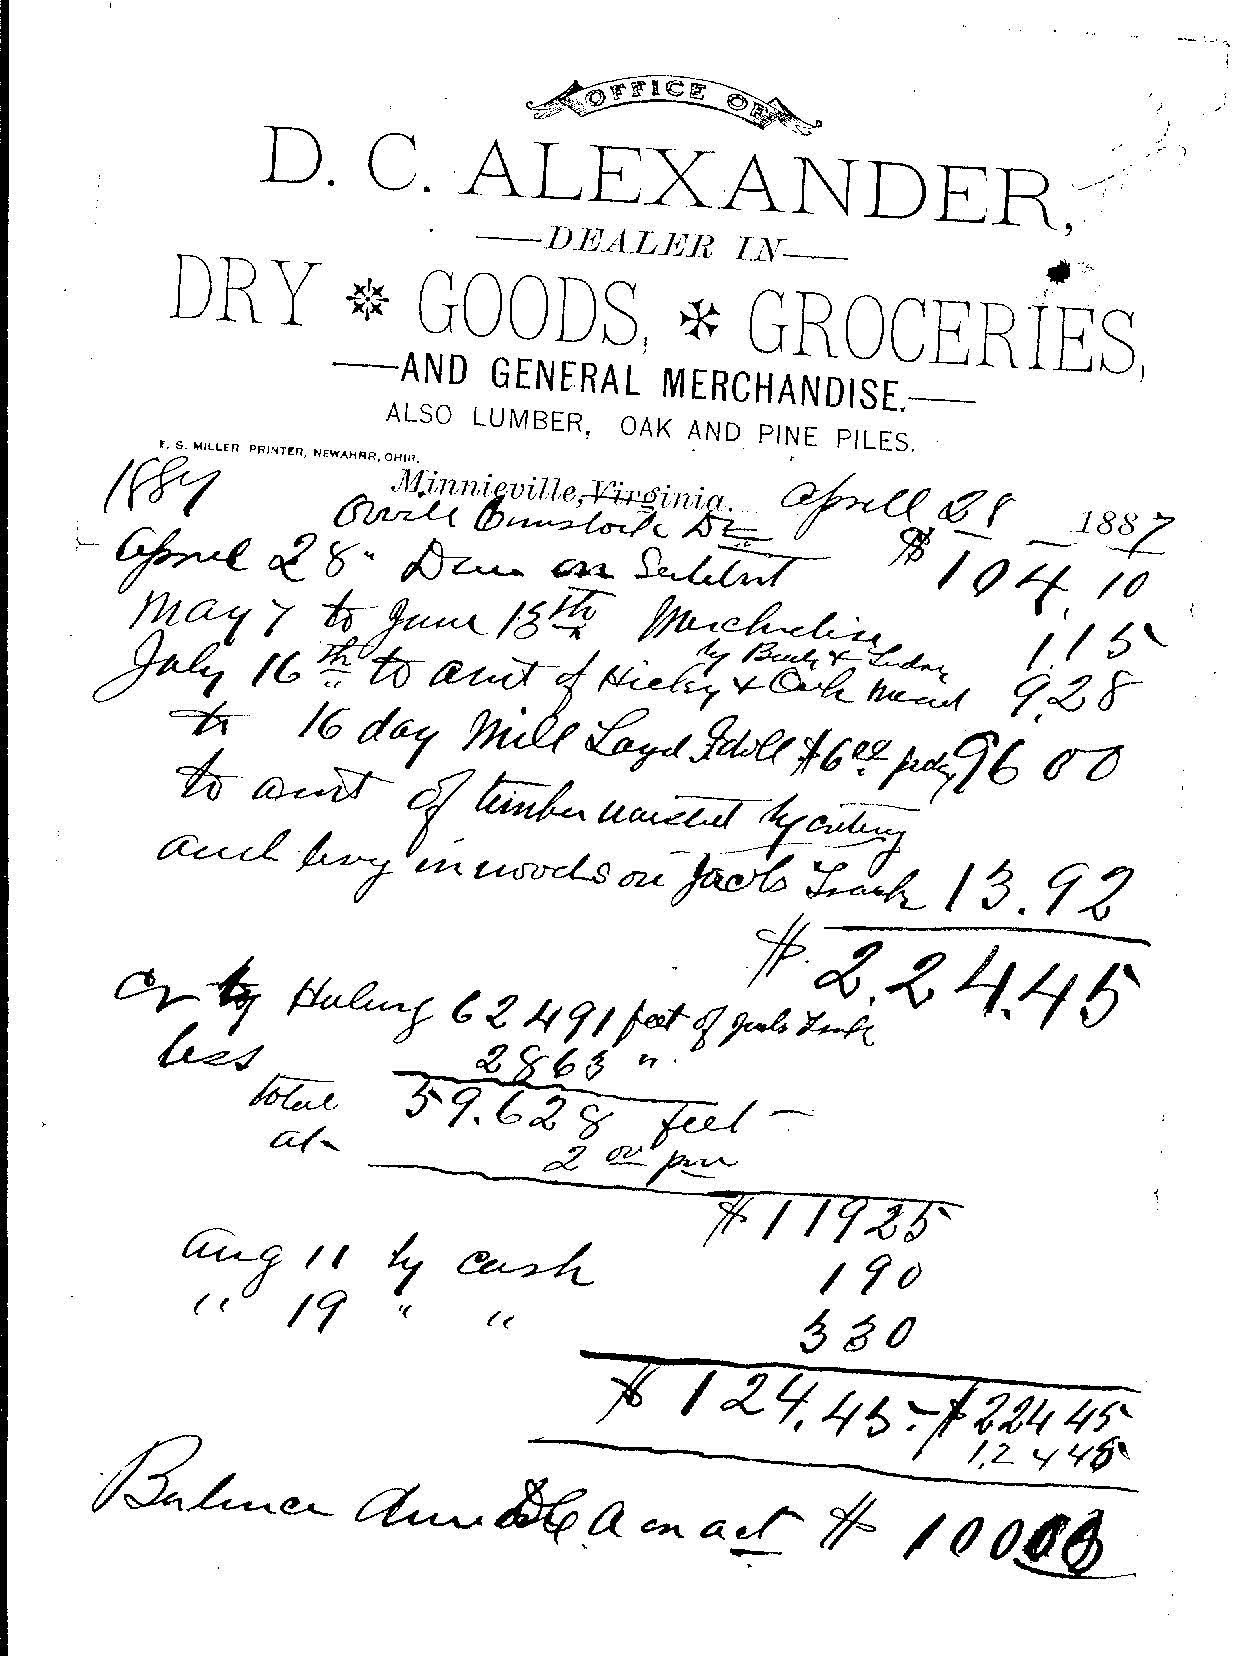 OFFICE OF
D. C. ALEXANDER,
DEALER IN
DRY GOODS, GROCERIES,
AND GENERAL MERCHANDISE.
ALSO LUMBER, OAK AND PINE PILES.
F. S. MILLER PRINTER, NEWARK, OHIO.
Minnieville, Virginia. Aprill 28 1887
1887
Orvill Dr
Aprael 28" Due on $104.10
May 7 to June 13th Merchndise 1.15
by Buck &
July 16th to amt of Hicky & 9.28
to 16 day Mill Layd Idoll $6 00 pr dy 96 00
to amt of timber by cuting
and levy in woods on Jacks Track 13.92
$ 224.45
Cr by Huling 62491 feet of Track
less 2863 "
total 59.628 feet
at 2 00 pr
$11925
Aug 11 by cash 190
" 19 " " 330
$124.45 - $224 45
124 45
Balance due DC A on act $ 10000